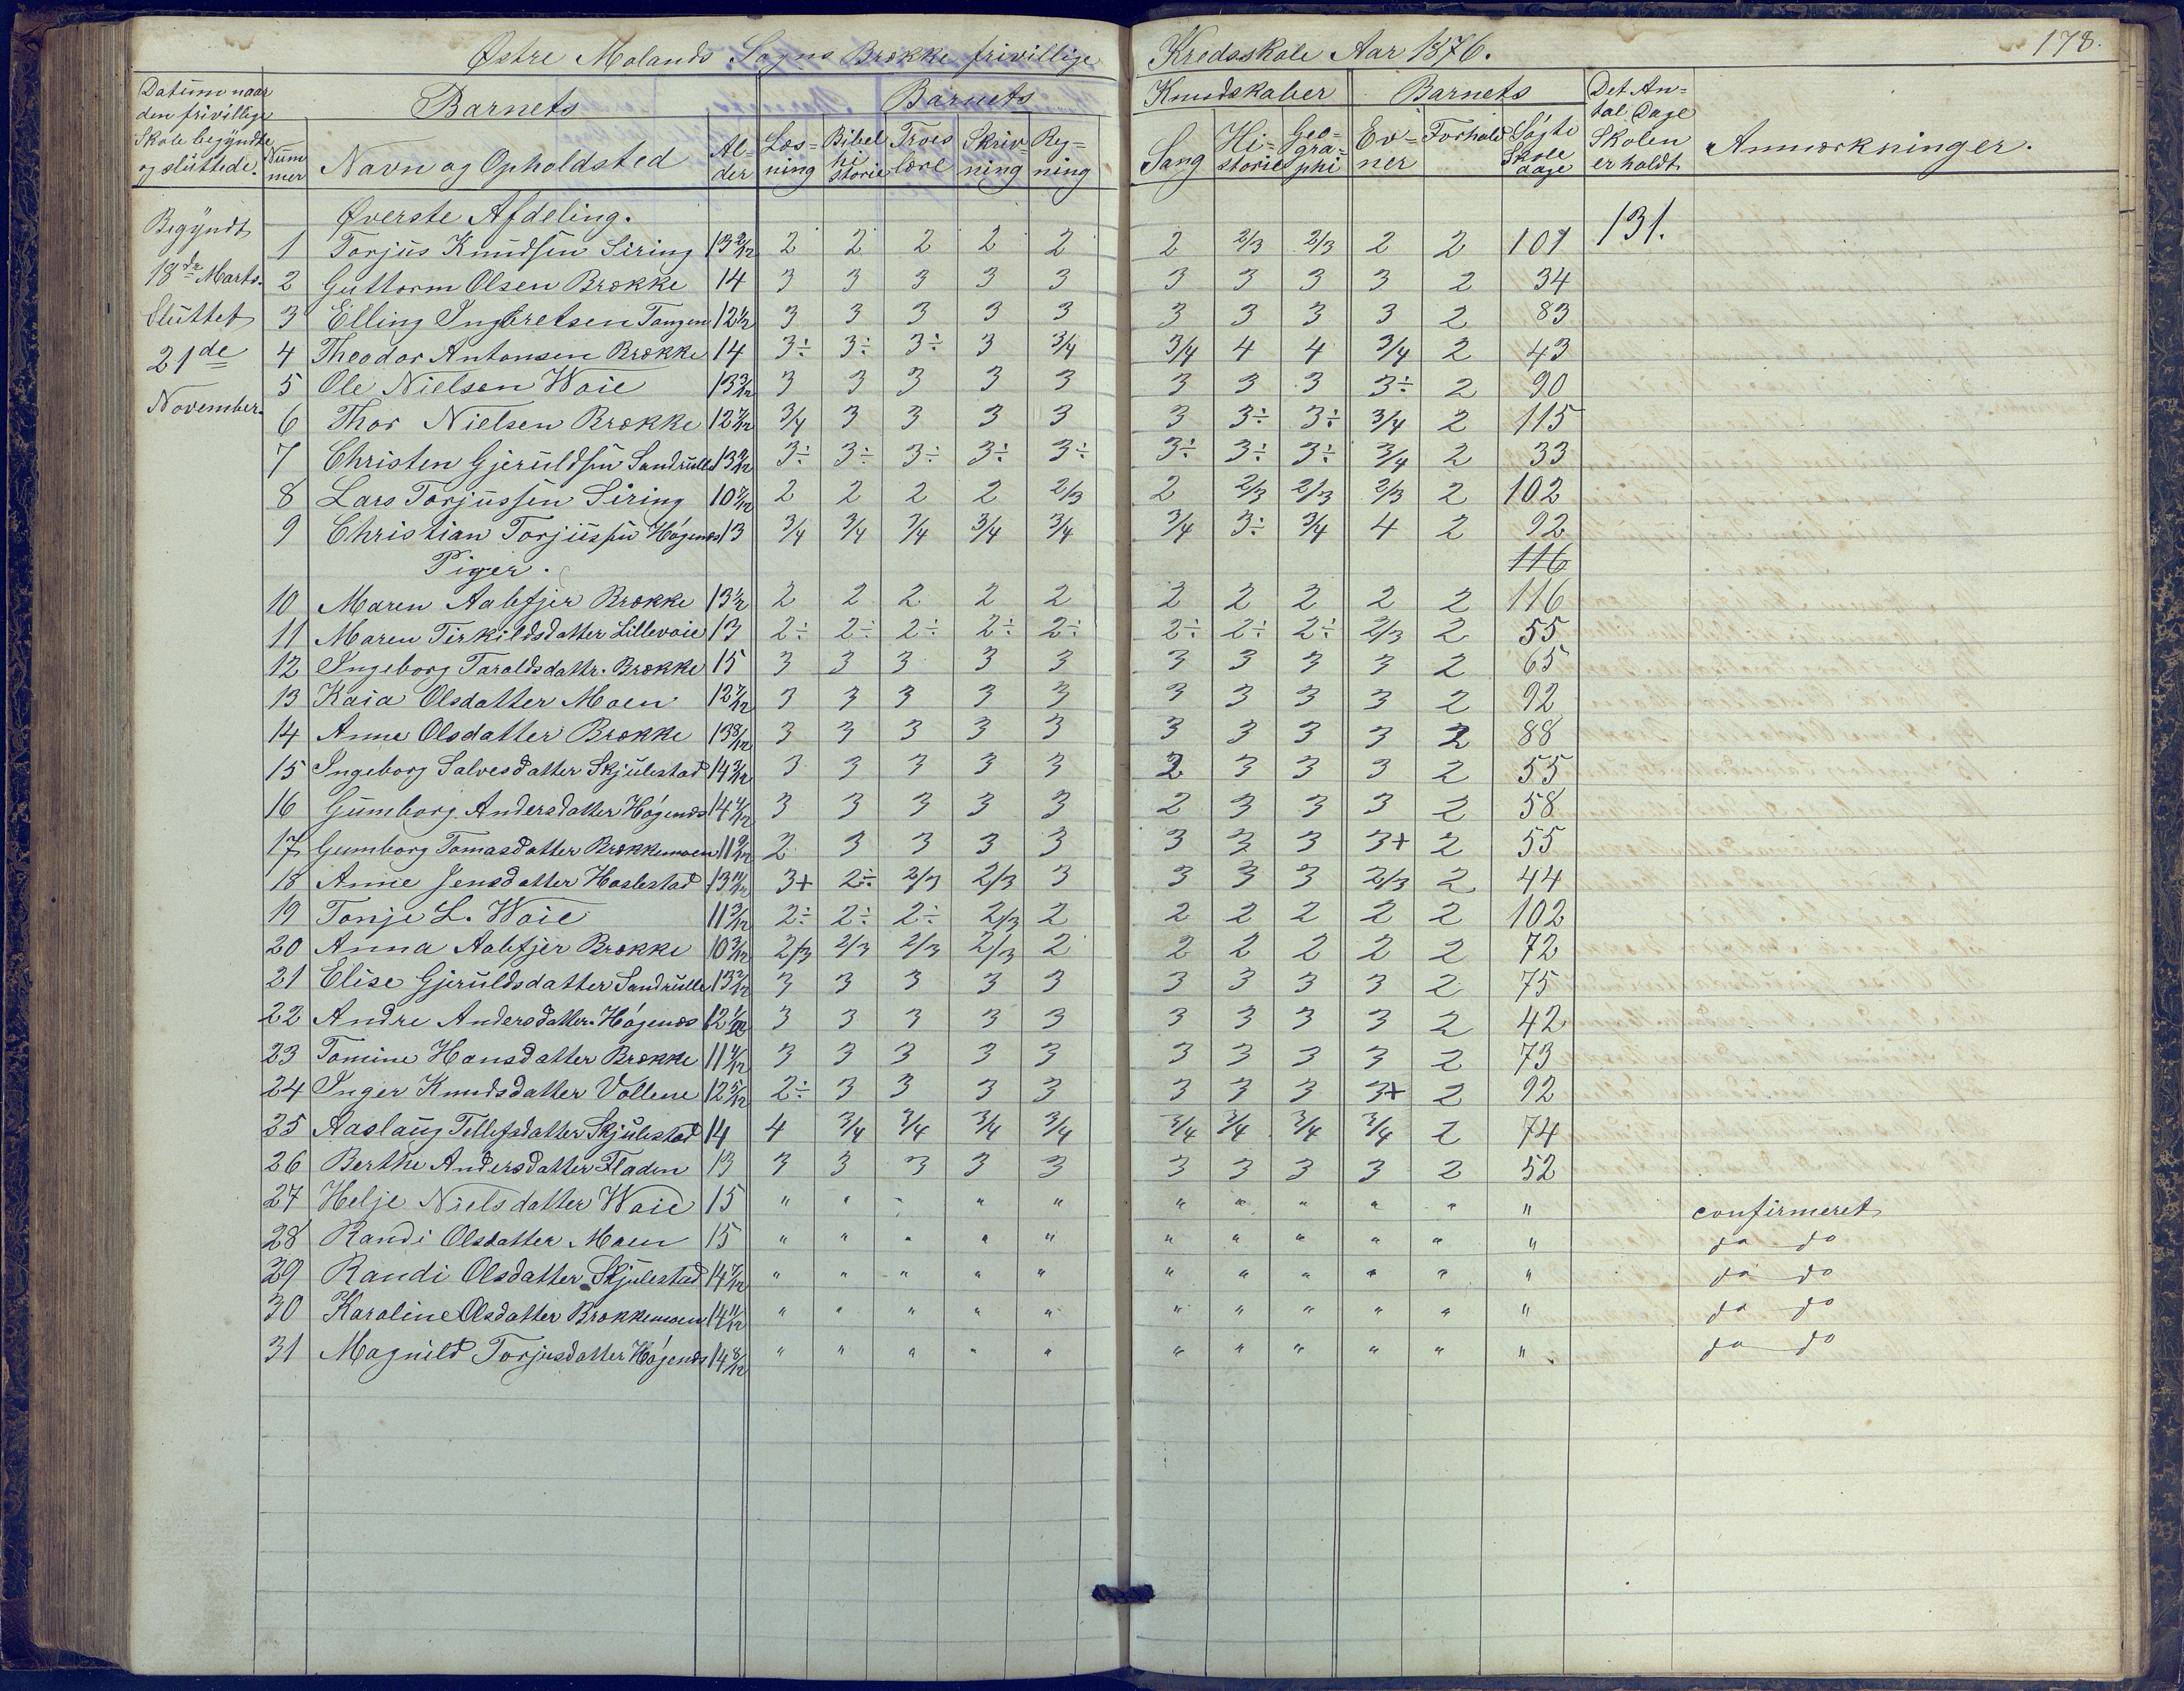 Østre Molands Sogns Brække frivillige Kredsskole Aar 1876. 178.
Datum naar den frivillige Skole begyndte og sluttede. Num mer Barnets Navn og Opholdsted Al- der Barnets Læs- ning Bibel hi storie Troes lære Skriv- ning Reg- ning Kundskaber Sang Hi- storie Geo- gra- phi Barnets Ev- ner Forhold Søgte Skole dage Det An- tal Dage Skolen er holdt Anmærkninger.
Øverste Afdeling.
Begyndt 1 Torjus Knudsen Siring 13 2/12 2 2 2 2 2 2 2/3 2/3 2 2 107 131.
18de Marts. 2 Guttorm Olsen Brække 14 3 3 3 3 3 3 3 3 3 2 34
Sluttet 3 Elling Ingbretsen Tangen 12 1/2 3 3 3 3 3 3 3 3 3 2 83
21de 4 Theodor Antonsen Brække 14 3÷ 3÷ 3÷ 3 3/4 3/4 4 4 3/4 2 43
5 Ole Nielsen Waie 13 3/12 3 3 3 3 3 3 3 3 3÷ 2 90
November. 6 Thor Nielsen Brække 12 7/12 3/4 3 3 3 3 3 3÷ 3÷ 3/4 2 115
7 Christen Gjeruldsen Sandrulle 13 9/12 3÷ 3÷ 3÷ 3÷ 3÷ 3÷ 3÷ 3÷ 3/4 2 33
8 Lars Torjussen Siring 10 7/12 2 2 2 2 2/3 2 2/3 2/3 2/3 2 102
9 Christian Torjussen Høgenes 13 3/4 3/4 3/4 3/4 3/4 3/4 3÷ 3/4 4 2 92
Piger. 116
10 Maren Aalefjer Brække 13 1/2 2 2 2 2 2 2 2 2 2 2 116
11 Maren Tirkildsdatter Lillevaie 13 2÷ 2÷ 2÷ 2÷ 2÷ 2÷ 2÷ 2÷ 2/3 2 55
12 Ingeborg Taraldsdattr. Brække 15 3 3 3 3 3 3 3 3 3 2 65
13 Kaia Olsdatter Moen 12 7/12 3 3 3 3 3 3 3 3 3 2 92
14 Anne Olsdatter Brække 13 8/12 3 3 3 3 3 3 3 3 3 2 88
15 Ingeborg Salvesdatter Skjulestad 14 3/12 3 3 3 3 3 2 3 3 3 2 55
16 Gumborg Andersdatter Høgenes 14 4/12 3 3 3 3 3 2 3 3 3 2 58
17 Gumborg Tomasdatter Brækkemoen 11 9/12 2 3 3 3 3 3 3 3 3+ 2 55
18 Anne Jensdatter Haslestad 13 11/12 3+ 2÷ 2/3 2/3 3 3 3 3 2/3 2 44
19 Tonje L. Waie 11 3/12 2÷ 2÷ 2÷ 2/3 2 2 2 2 2 2 102
20 Anna Aalefjer Brække 10 3/12 2/3 2/3 2/3 2/3 2 2 2 2 2 2 72
21 Elise Gjeruldsdatter Sandrulle 13 2/12 3 3 3 3 3 3 3 3 3 2 75
22 Andre Andersdatter Høgenes 12 1/12 3 3 3 3 3 3 3 3 3 2 42
23 Tomine Hansdatter Brække 11 4/12 3 3 3 3 3 3 3 3 3 2 73
24 Inger Knudsdatter Vollene 12 5/12 2÷ 3 3 3 3 3 3 3 3+ 2 92
25 Aaslaug Tellefsdatter Skjulestad 14 4 3/4 3/4 3/4 3/4 3/4 3/4 3/4 3/4 2 74
26 Berthe Andersdatter Fladen 13 3 3 3 3 3 3 3 3 3 2 52
27 Helje Nielsdatter Waie 15 " " " " " " " " " " " confirmeret
28 Randi Olsdatter Moen 15 " " " " " " " " " " " do do
29 Randi Olsdatter Skjulestad 14 7/12 " " " " " " " " " " " do do
30 Karoline Olsdatter Brækkemoen 14 11/12 " " " " " " " " " " " do do
31 Magnild Torjusdatter Høgenes 14 8/12 " " " " " " " " " " " do do